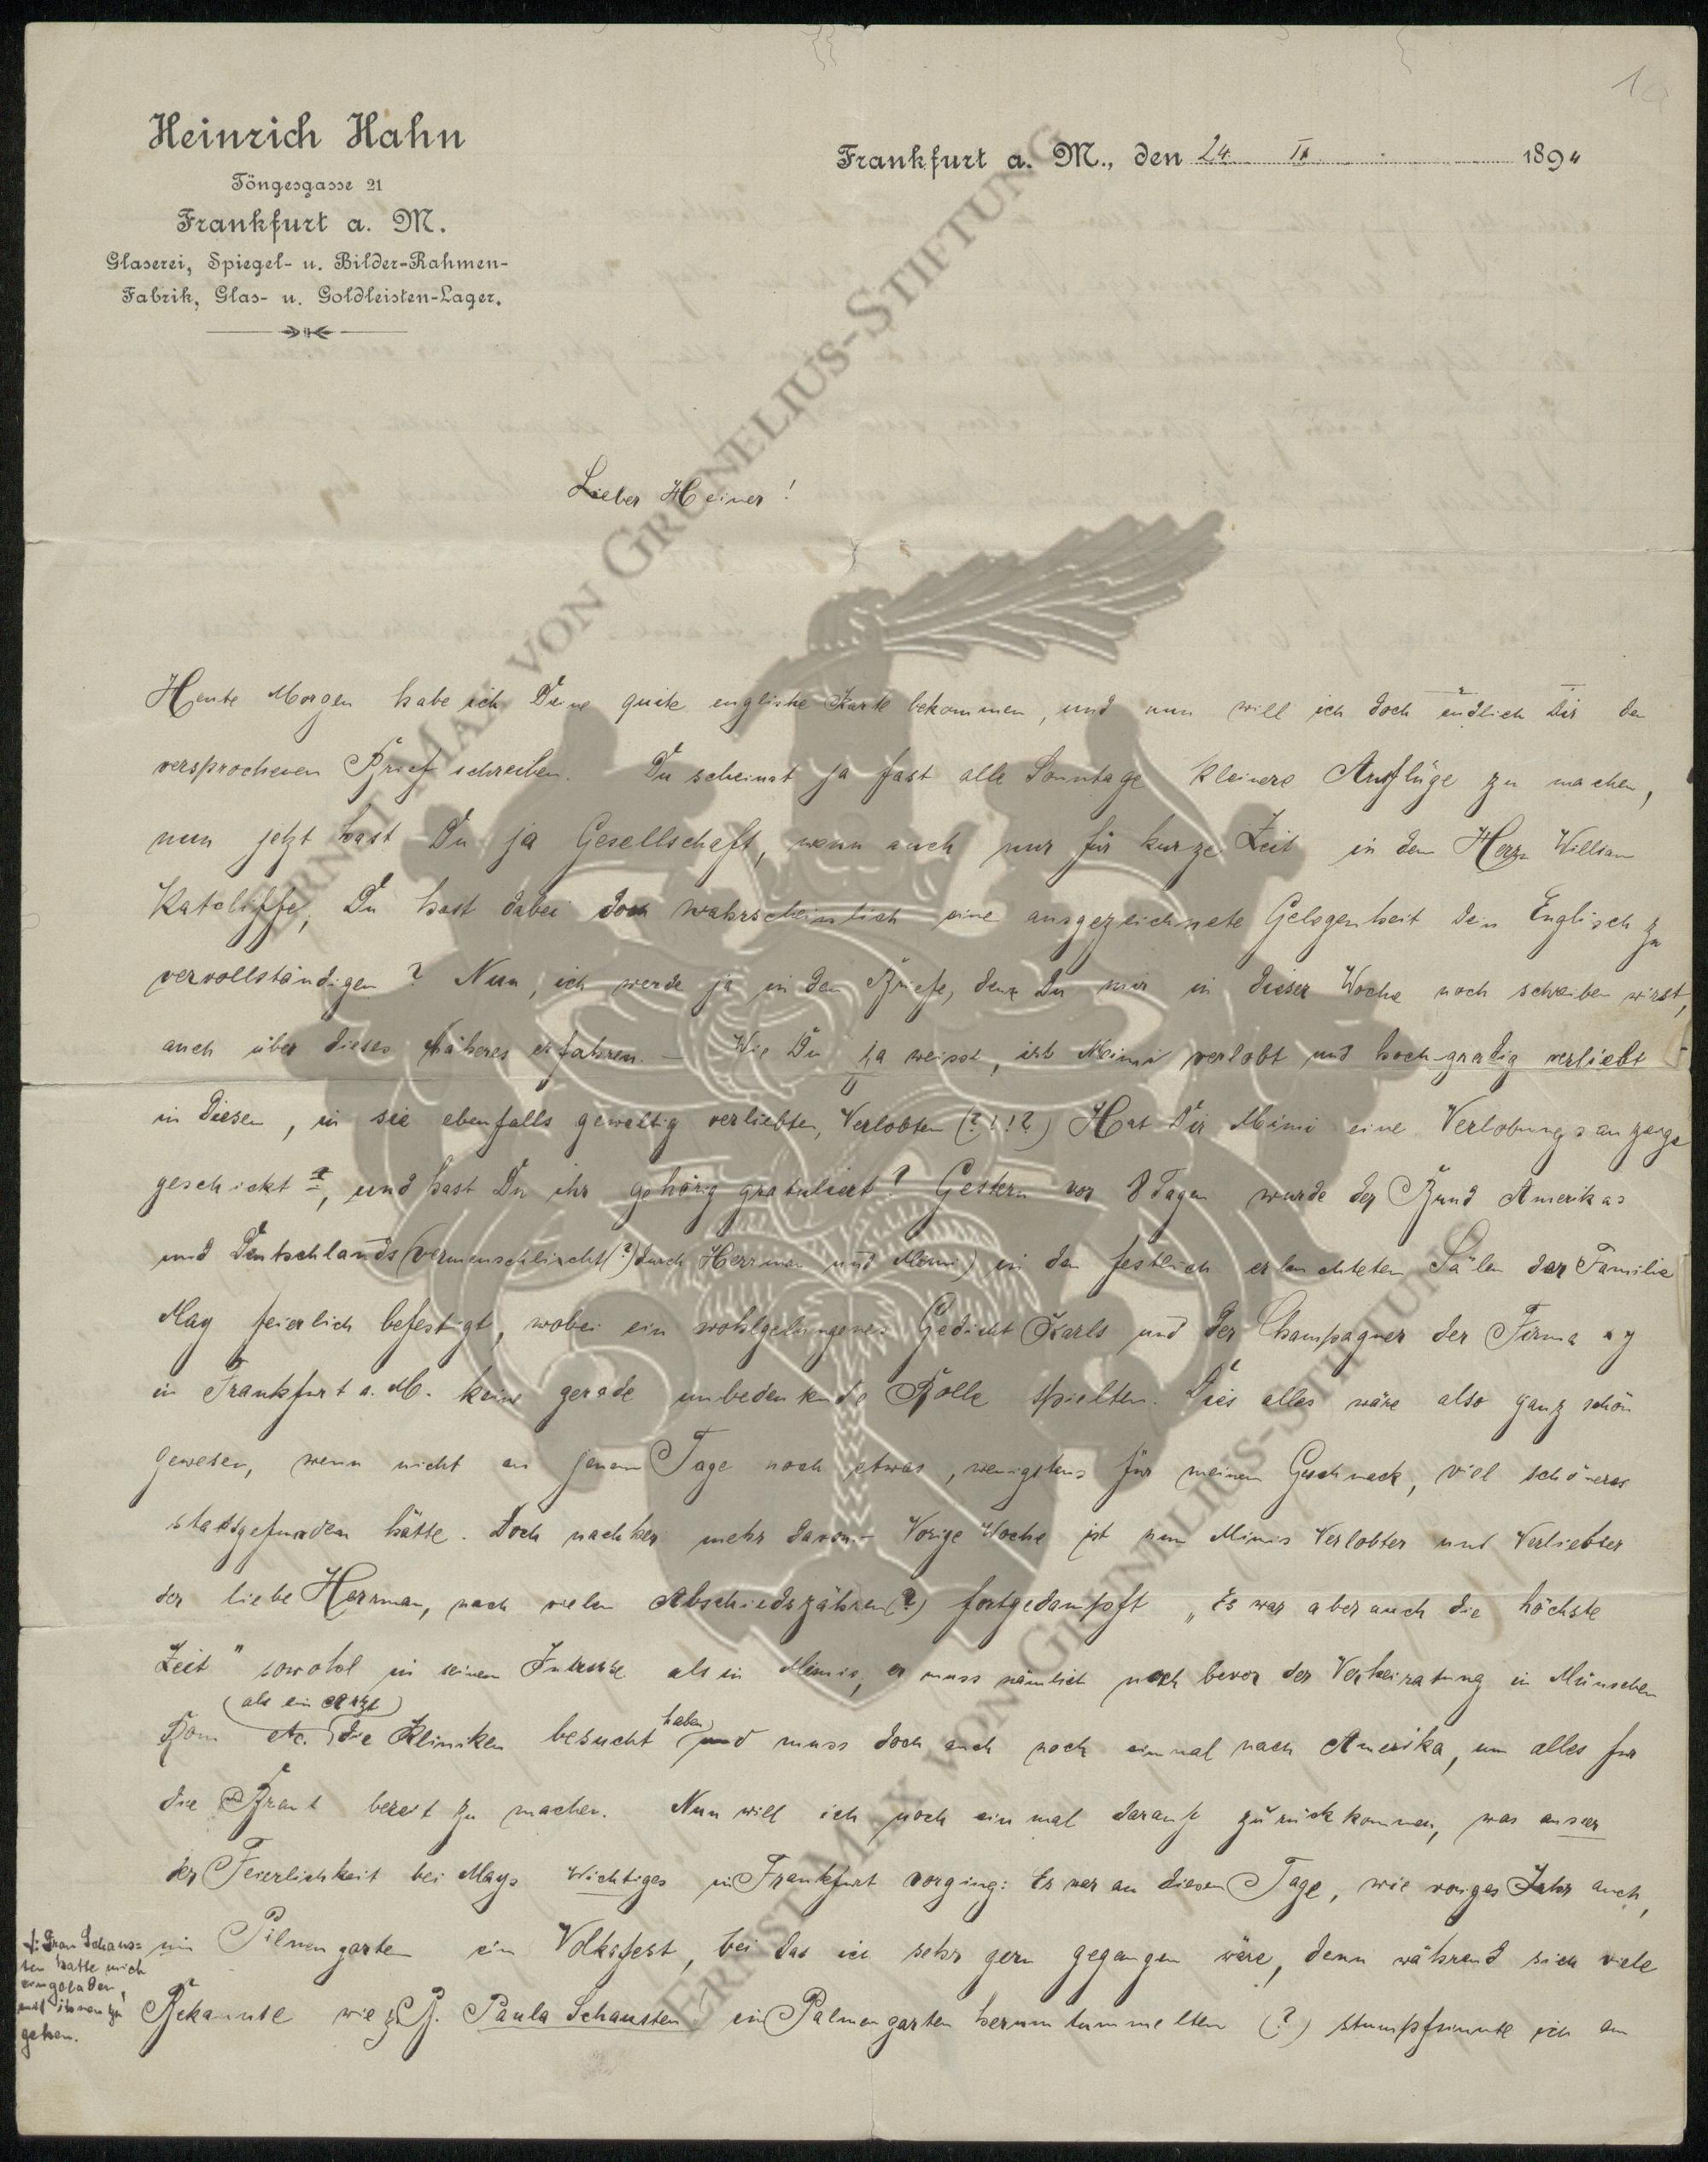 Heinrich Hahn
Töngesgasse 21
Frankfurt a. M.
Glaserei, Spiegel- u. Bilder-Rahmen-
Fabrik, Glas- u. Goldleisten-Lager.
Frankfurt a. M., den 24. 1894
Lieber Heiner!
Heute Morgen habe ich Deine quite englishe Karte bekommen, und nun will ich doch endlich Dir den
versprochenen Brief schreiben. Du scheinst ja fast alle Sonntage kleinere Ausflüge zu machen,
nun jetzt hast Du ja Gesellschaft, wenn auch nur für kurze Zeit in dem Herrn William
Ratcliffe, Du hast dabei doch wahrscheinlich eine ausgezeichnete Gelegenheit dein Englisch zu
vervollständigen? Nun, ich werde ja in dem Briefe, den Du mir in dieser Woche noch schreiben wirst,
auch über dieses Näheres erfahren. — Wie Du ja weisst, ist Mimi verlobt und hoch-gradig verliebt
in diesen, in sie ebenfalls gewaltig verliebten, Verlobten (?!!?) Hat Dir Mimi eine Verlobungsanzeige
geschickt, und hast Du ihr gehörig gratuliert? Gestern vor 8 Tagen wurde der Bund Amerikas
und Deutschlands (vermenschlicht(?) durch Herrman und Mimi) in den festlich erleuchteten Sälen der Familie
May feierlich befestigt, wobei ein wohlgelungenes Gedicht Karls und der Champagner der Firma
in Frankfurt a. M. keine gerade unbedeutende Rolle spielten. Dies alles wäre also ganz schön
gewesen, wenn nicht an jenem Tage noch etwas, wenigstens für meinen Geschmack, viel schöneres
stattgefunden hätte. Doch nachher mehr davon.— Vorige Woche ist nun Mimis Verlobter und Verliebter
der liebe Herrman, nach vielen Abschiedszähren(?) fortgedampft „Es war aber auch die höchste
Zeit" sowohl in seinem Interesse als in Mimis, er muss nämlich noch bevor der Verheiratung in München
(als ein Arzt)
Rom etc. die Kliniken besucht haben und muss doch auch noch einmal nach Amerika, um alles für
die Braut bereit zu machen. Nun will ich noch einmal darauf zurückkommen, was ausser
der Feierlichkeit bei Mays Wichtiges in Frankfurt vorging: Es war an diesem Tage, wie voriges Jahr auch,
im Palmengarten ein Volksfest, bei das ich sehr gern gegangen wäre, denn während sich viele
Bekannte wie z. B. Paula Schausten im Palmengarten herumtummelten (?) stumpfsinnte ich am
Frau Schaus=
ten hatte mich
eingeladen,
mit ihnen zu
gehen.
ERNST MAX VON GRUNELIUS-STIFTUNG
ERNST MAX VON GRUNELIUS-STIFTUNG